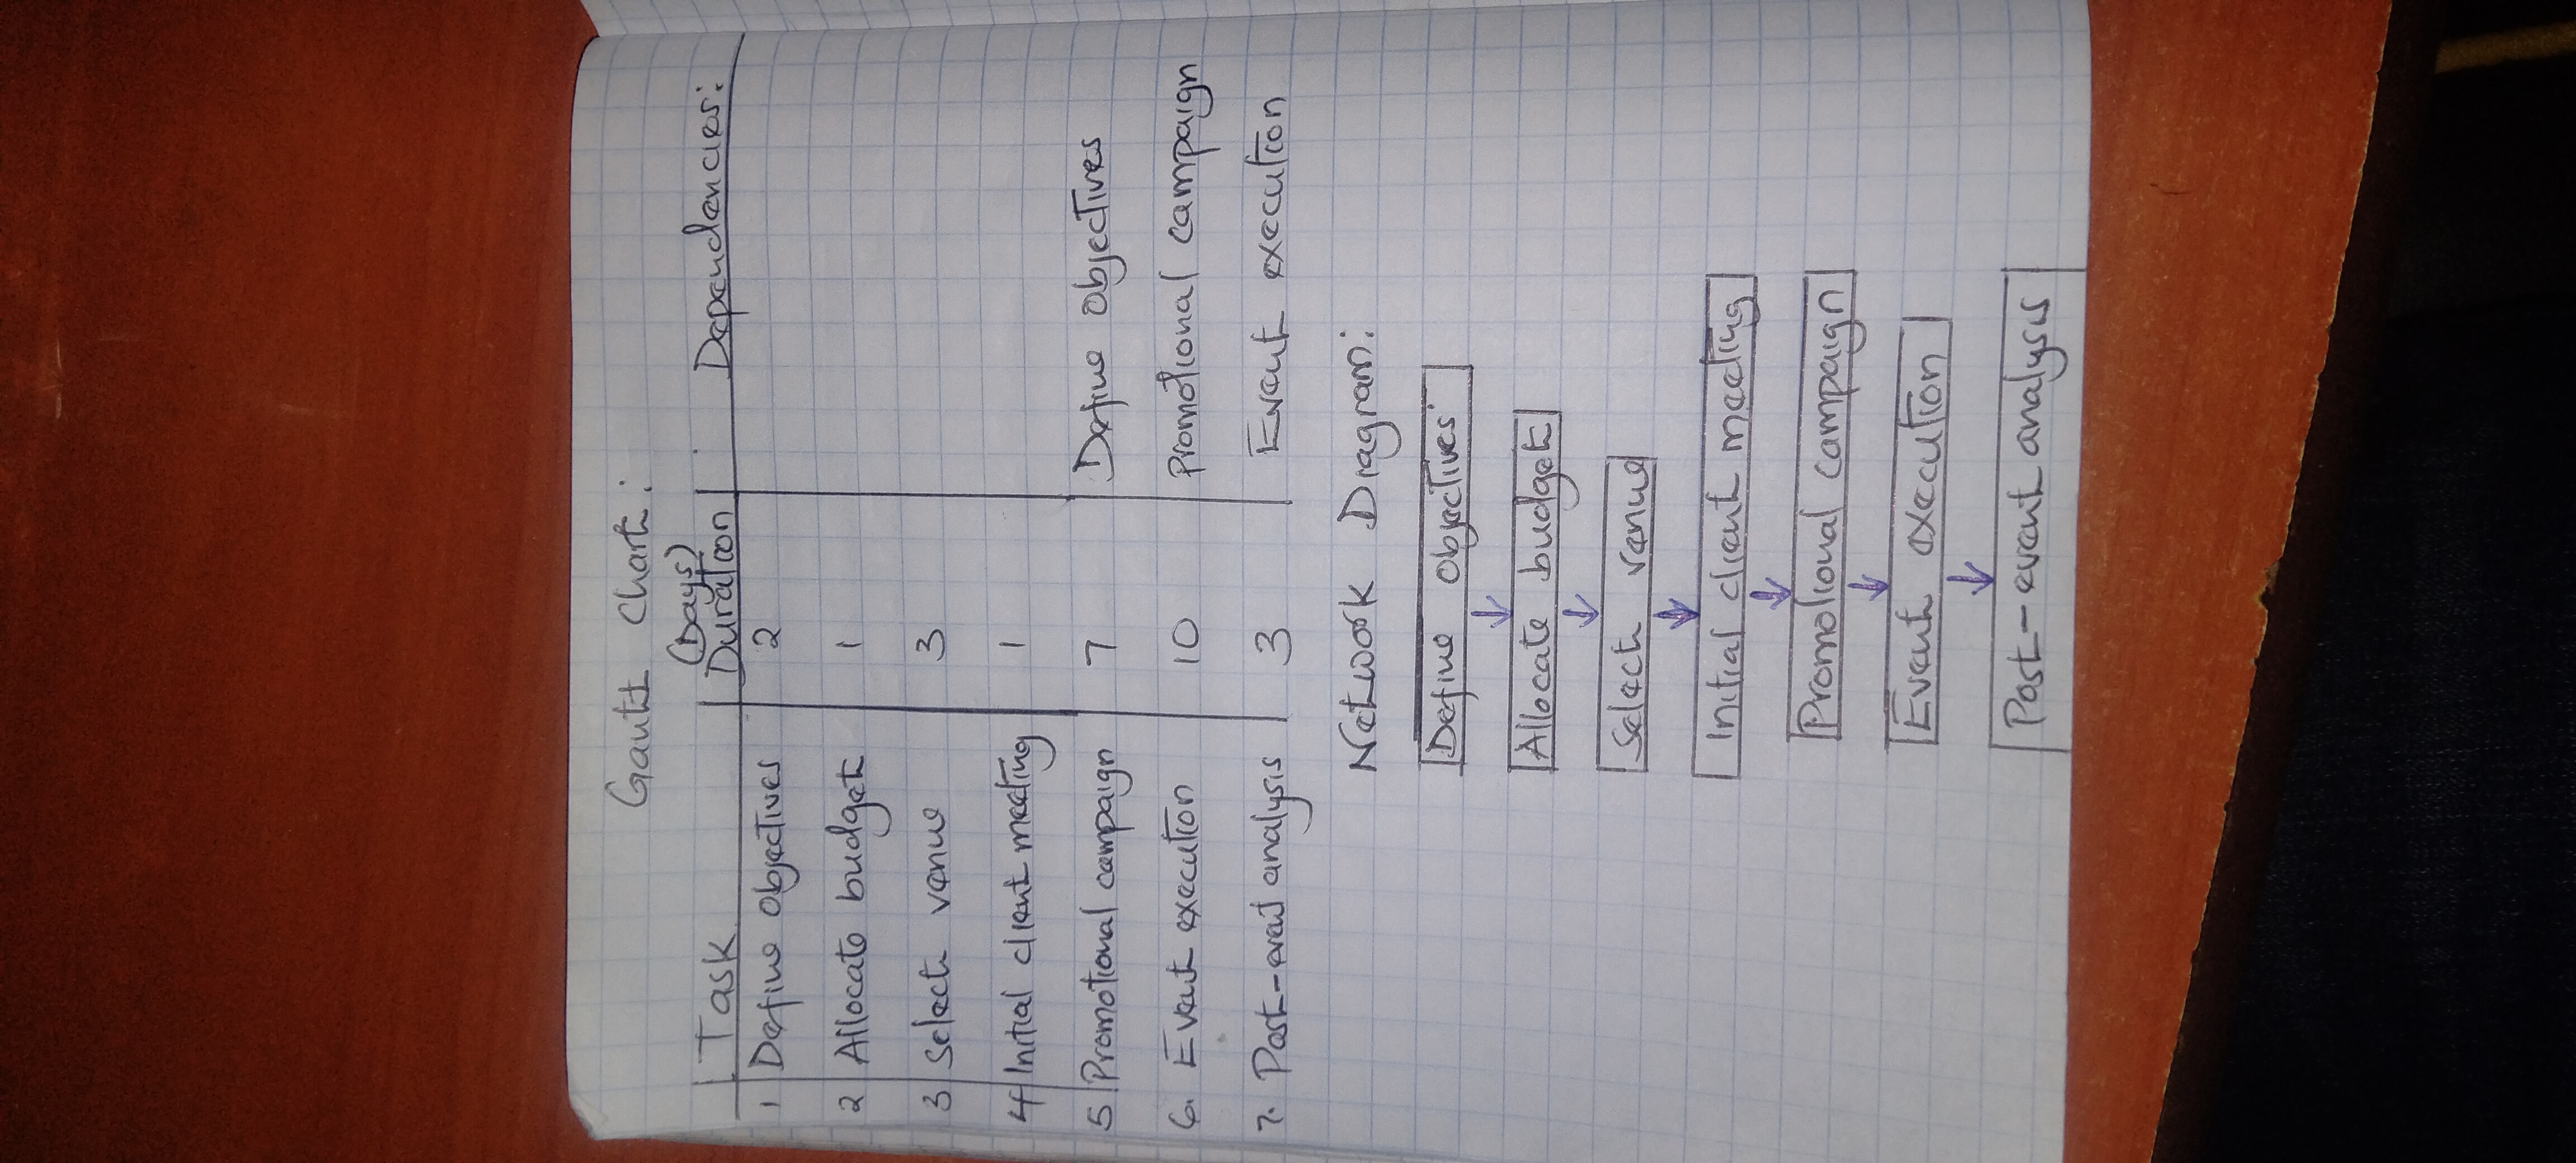 Gantt Chart:
Task (Days) Duration Dependencies:
1 Define Objectives 2
2 Allocate budget 1
3 Select venue 3
4 Initial client meeting 1
5 Promotional campaign 7 Define Objectives
6. Event execution 10 Promotional campaign
7. Post-event analysis 3 Event execution
Network Diagram:
Define Objectives
↓
Allocate budget
↓
Select venue
↓
Initial client meeting
↓
Promotional campaign
↓
Event execution
↓
Post-event analysis